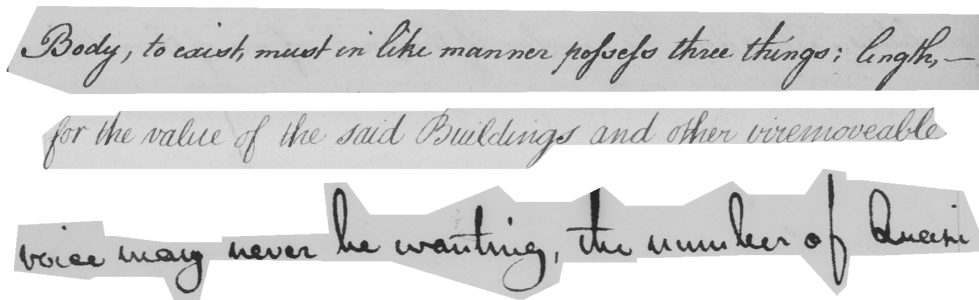 Body, to exist, must in like manner possess three things; length,—
for the value of the said Buildings and other viremoveable
voice may never be wanting, the number of